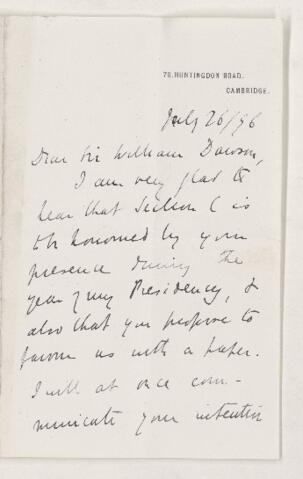 78, HUNTINGDON ROAD,
CAMBRIDGE.
July 26/96
Dear Sir William Dawson,
I am very glad to
hear that Section C is
to be honoured by your
presence during the
year of my Presidency, &
also that you propose to
favour us with a paper.
I will at once com-
municate your intention